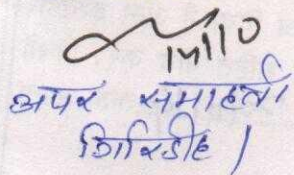 14/10
अपर समाहर्ता
गिरिडीह।